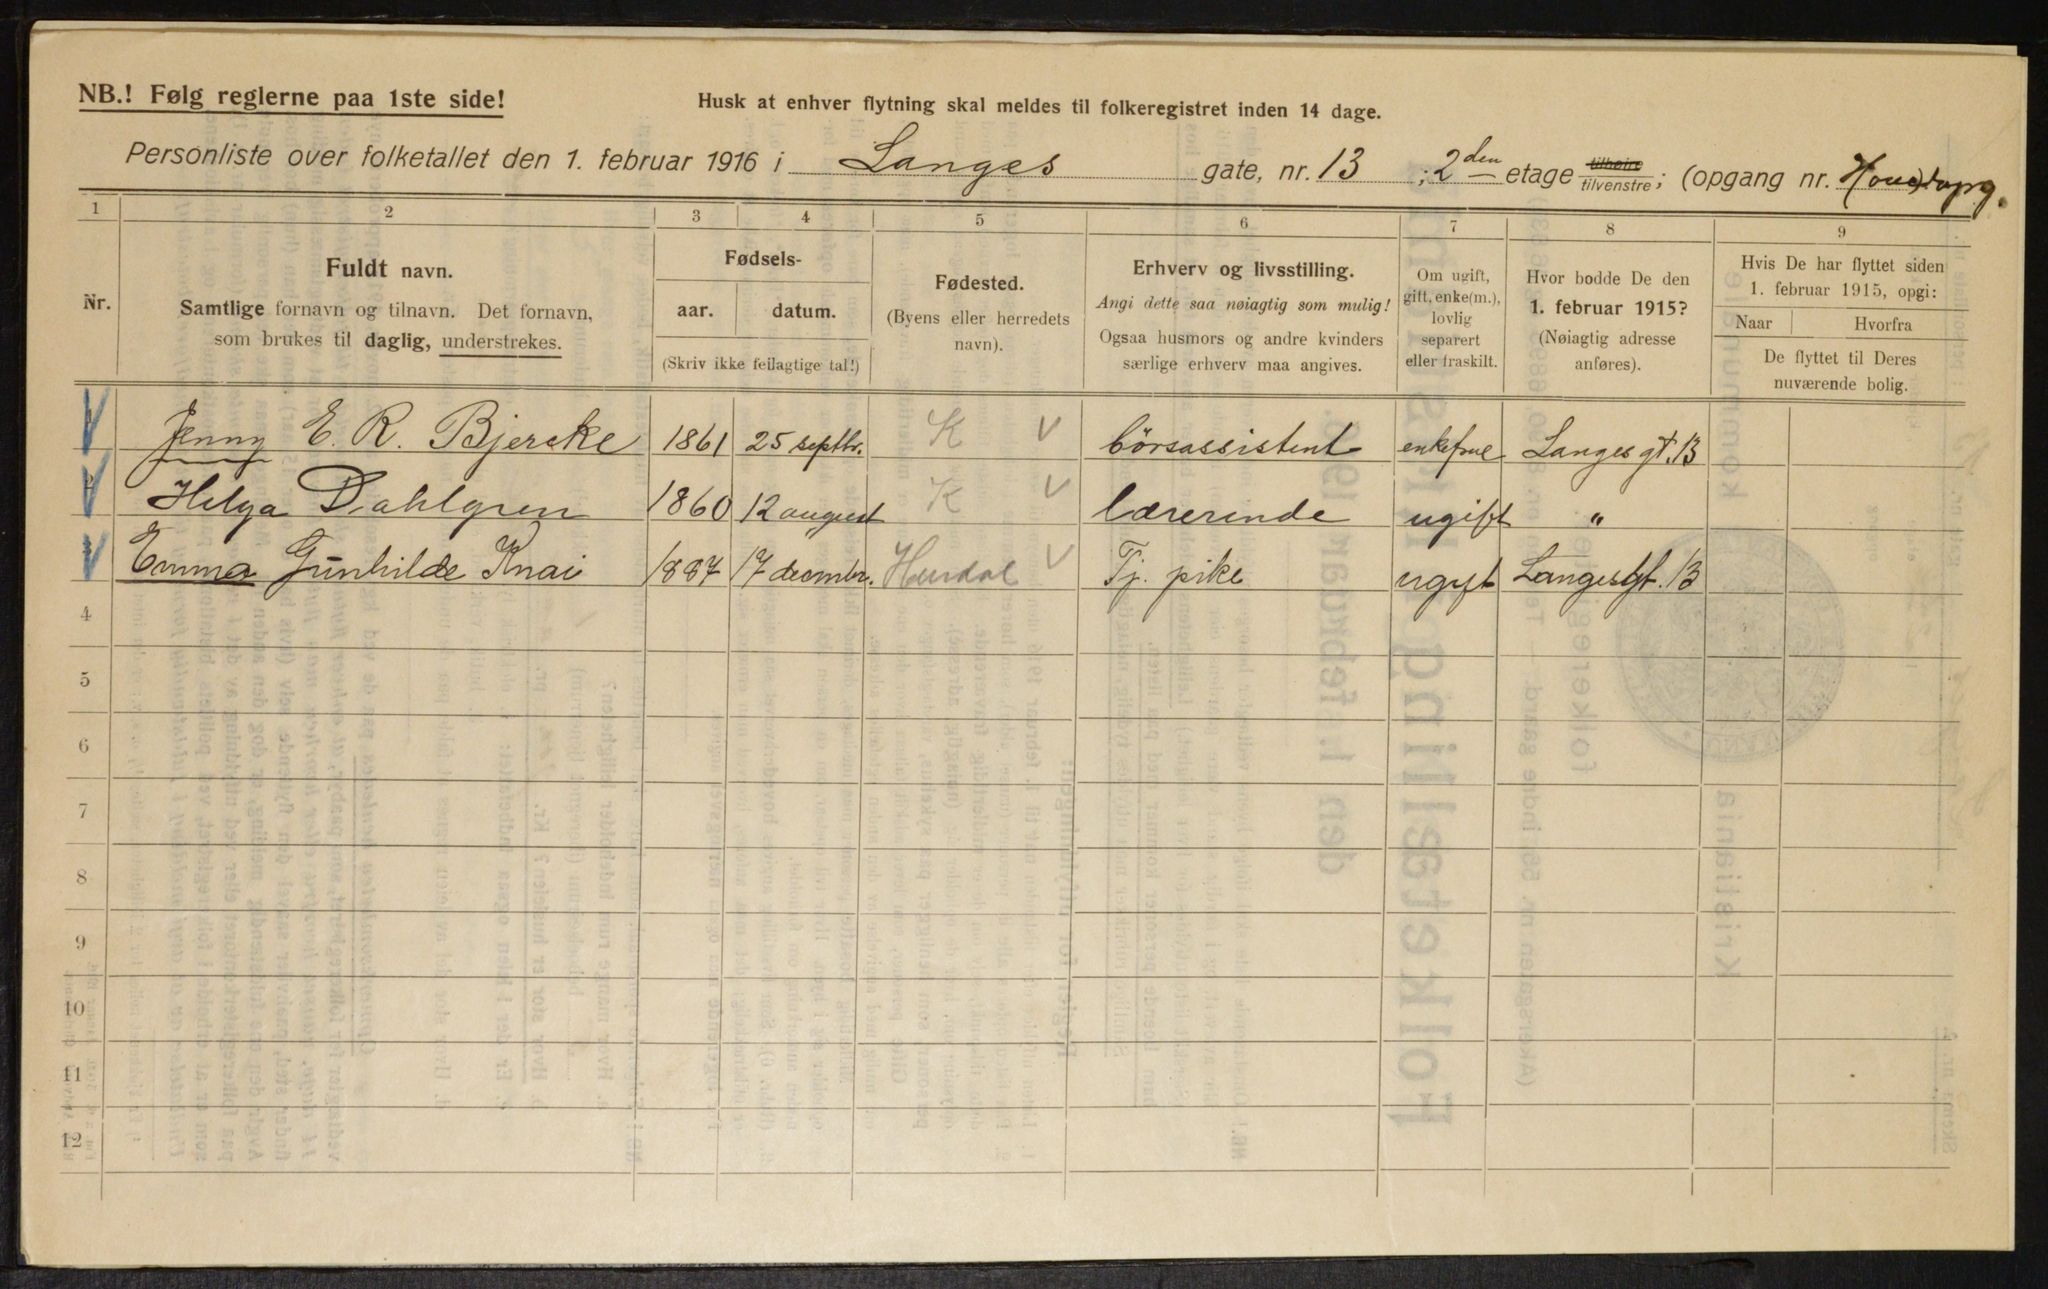 NB.! Følg reglerne paa 1ste side!
Husk at enhver flytning skal meldes til folkeregistret inden 14 dage.
Personliste over folketallet den 1. februar 1916 i Langes gate, nr. 13 ; 2den etage tilhøire tilvenstre; (opgang nr.
1 2 3 4 5 6 7 8 9
Nr.
Fuldt navn.
Samtlige fornavn og tilnavn. Det fornavn,
som brukes til daglig, understrekes.
Fødsels-
aar. datum.
(Skriv ikke feilagtige tal!)
Fødested.
(Byens eller herredets
navn).
Erhverv og livsstilling.
Angi dette saa nøiagtig som mulig!
Ogsaa husmors og andre kvinders
særlige erhverv maa angives.
Om ugift,
gift, enke(m.),
lovlig
separert
eller fraskilt.
Hvor bodde De den
1. februar 1915?
(Nøiagtig adresse
anføres).
Hvis De har flyttet siden
1. februar 1915, opgi:
Naar Hvorfra
De flyttet til Deres
nuværende bolig.
Jenny E. R. Bjercke 1861 25 septbr. K børsassistent enkefrue Langes gt. 13
Helga Dahlgren 1860 12 august K lærerinde ugift "
Emma Gunhilde Knai 1887 17 decmbr. Hurdal Tj. pike ugift Langesgt. 13
4
5
6
7
8
9
10
11
12